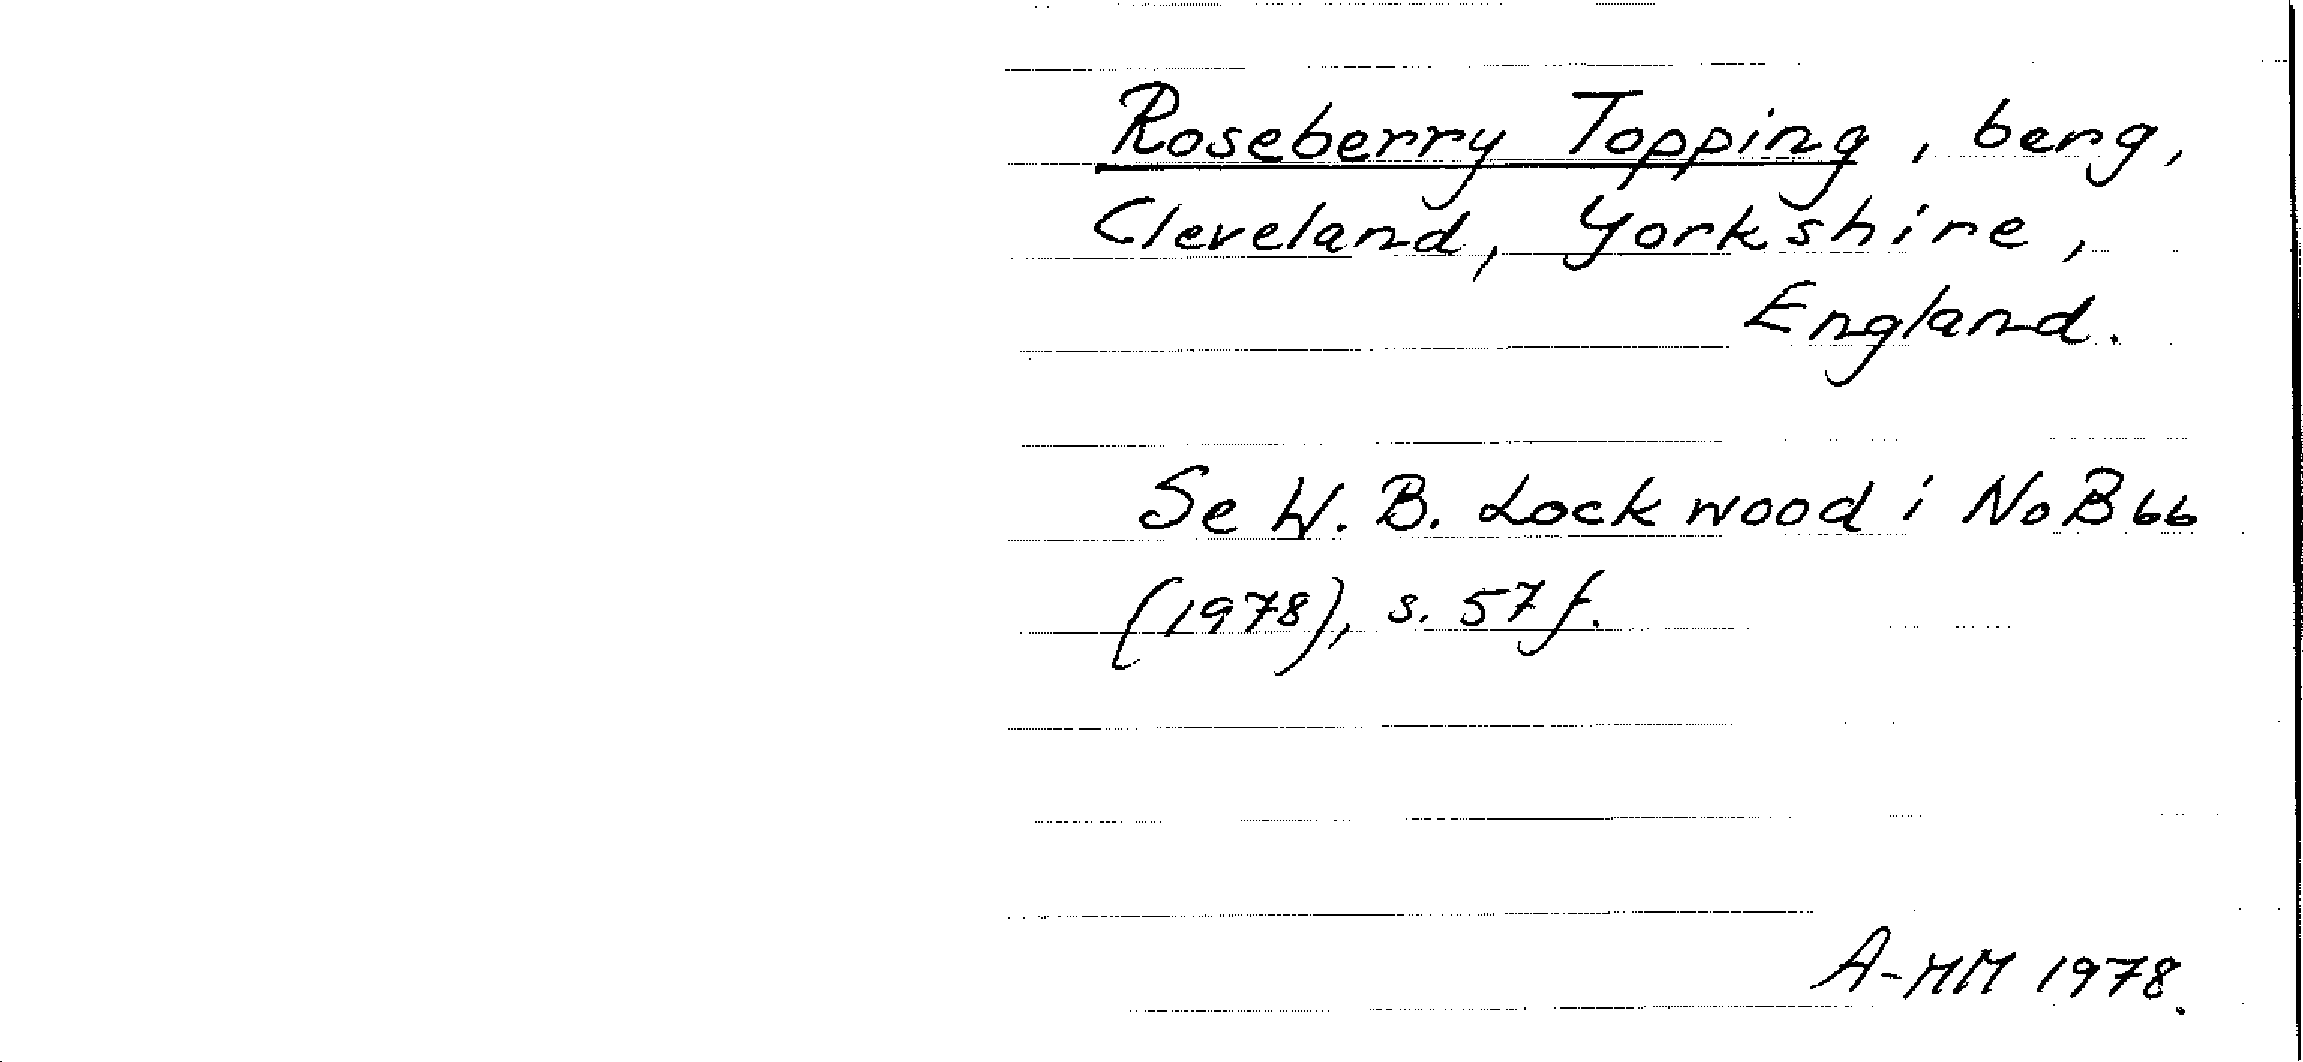 Roseberry Topping, berg,
Cleveland, Yorkshire,
England.
Se W. B. Lockwood i NoB 66
(1978), s. 57 f.
A-MM 1978.